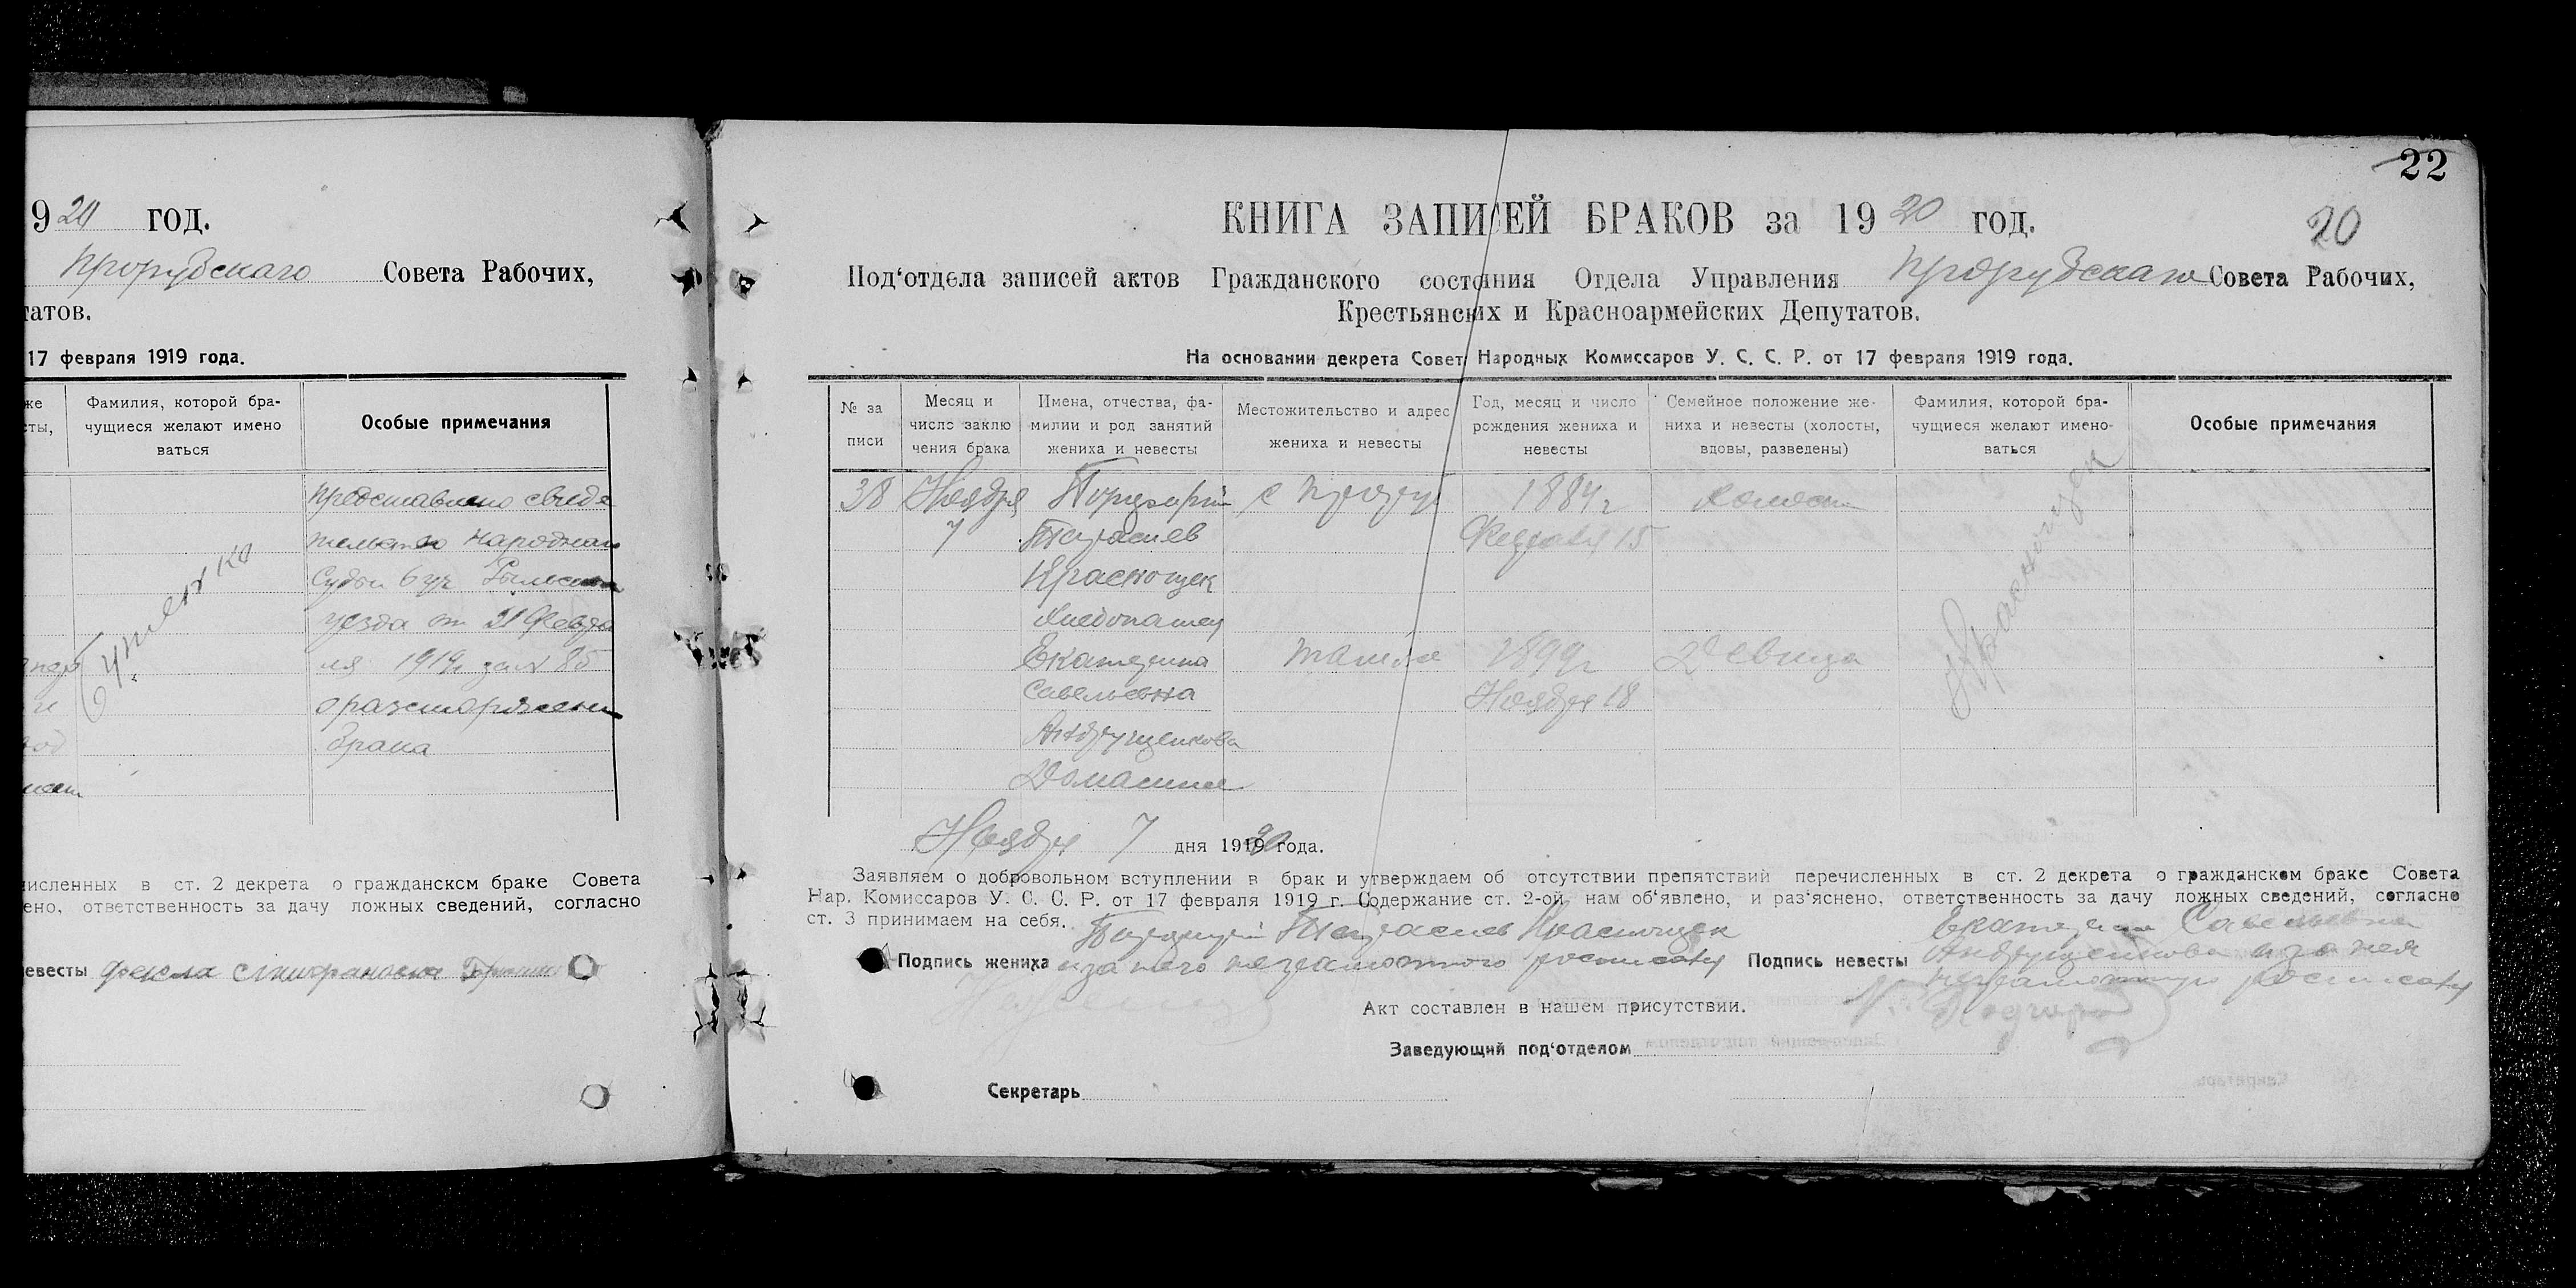 920 год.
Прорубскаго Совета Рабочих,
татов.
17 февраля 1919 года.
же
сты,
Фамилия, которой бра-
чущиеся желают имено
ваться
Особые примечания
представлено свиде
тельство народнаго
Судьи 6 уч
уезда от 21 Февра
ля 1919г за № 85
о расторжении
брака
численных в ст. 2 декрета о гражданском браке Совета
ено, ответственность за дачу ложных сведений, согласно
невесты Фекла
22
20
КНИГА ЗАПИСЕЙ БРАКОВ за 1920 год.
Под‘отдела записей актов Гражданского состояния Отдела Управления Прорубскаго Совета Рабочих,
Крестьянских и Красноармейских Депутатов.
На основании декрета Совет Народных Комиссаров У. С. С. Р. от 17 февраля 1919 года.
№ за
писи
Месяц и
число заклю
чения брака
Имена, отчества, фа-
милии и род занятий
жениха и невесты
Местожительство и адрес
жениха и невесты
Год, месяц и число
рождения жениха и
невесты
Семейное положение же-
ниха и невесты (холосты,
вдовы, разведены)
Фамилия, которой бра-
чущиеся желают имено-
ваться
Особые примечания
38 Ноября Порфирий с Проруб 1884г Холост
7 Тарасиев Февраля 15
Краснощек
Хлебопашец
Екатерина тоже 1899г Девица
Савельевна Ноября 18
Андрущенкова
Домашняя
Краснощек
Ноября 7 дня 1920 года.
Заявляем о добровольном вступлении в брак и утверждаем об отсутствии препятствий перечисленных в ст. 2 декрета о гражданском браке Совета
Нар. Комиссаров У. С. С. Р. от 17 февраля 1919 г. Содержание ст. 2-ой нам об‘явлено, и раз‘яснено, ответственность за дачу ложных сведений, согласно
ст. 3 принимаем на себя.
Порфирий Тарасиев Краснощек
Подпись жениха и за него неграмотного росписался
Екатерина Савельевна
Подпись невесты Андрущенкова и за нея
неграмотную росписался
Акт составлен в нашем присутствии.
Заведующий под‘отделом
Секретарь